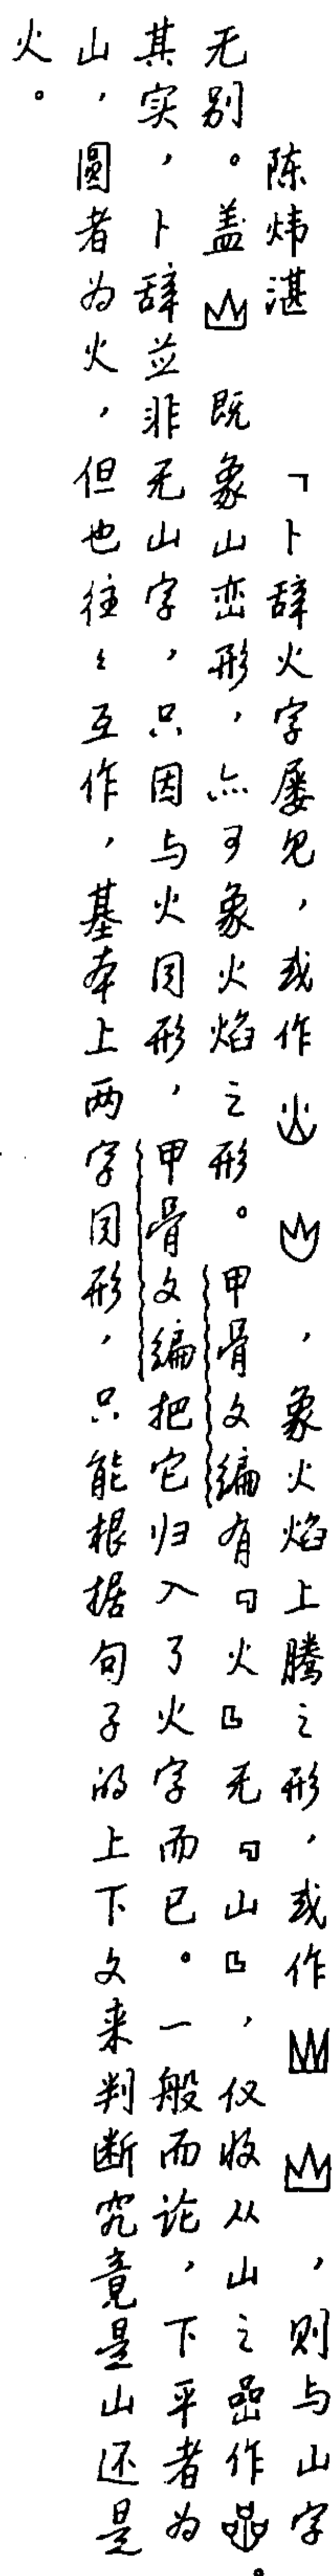 陈炜湛　「卜辞火字屡见，或作　　，象火焰上腾之形，或作　　，则与山字
无别。盖　既象山峦形，亦可象火焰之形。甲骨文编有『火』无『山』，仅收从山之嵒作　。
其实，卜辞並非无山字，只因与火同形，甲骨文编把它归入了火字而已。一般而论，下平者为
山，圆者为火，但也往々互作，基本上两字同形，只能根据句子的上下文来判断究竟是山还是
火。